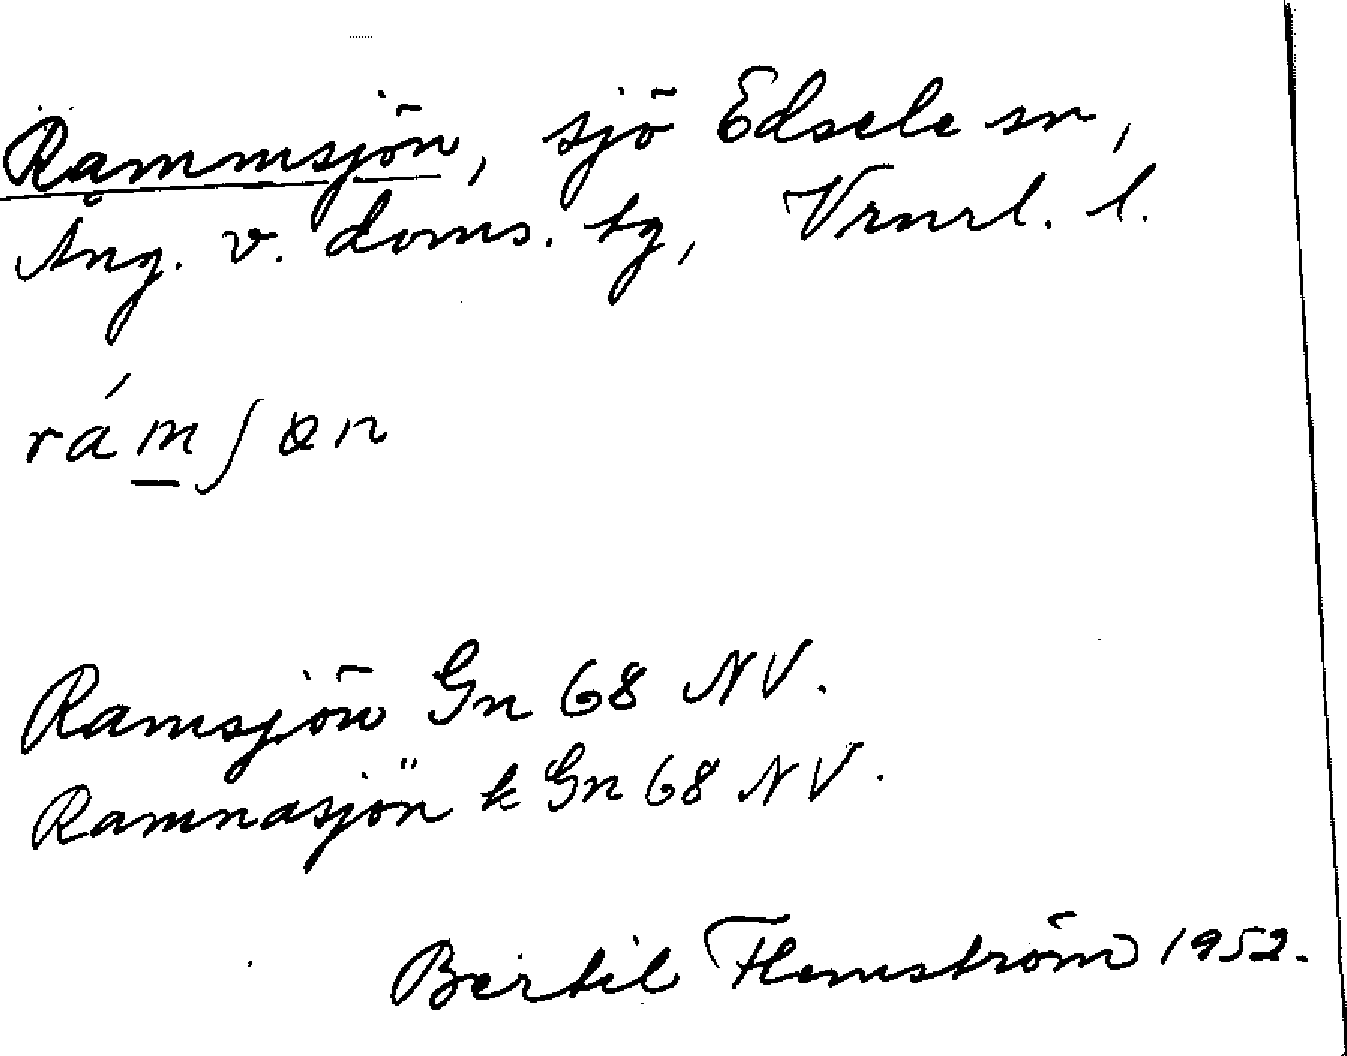 Rammsjön, sjö Edsele sn,
Ång. v. doms. tg, Vrnrl. l.
rám̲ʃøn
Ramsjön Gn 68 NV.
Ramnasjön k Gn 68 NV.
Bertil Flemström 1952.